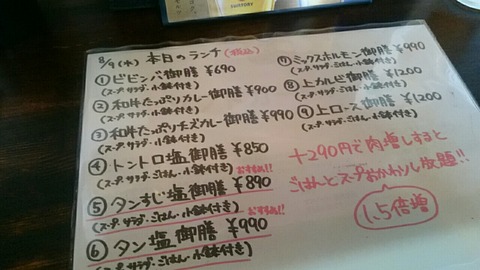 SUNTORY
8/9(木) 本日のランチ(税込)
① ビビンバ御膳 ¥690
(スープ・サラダ・小鉢付き)
② 和牛たっぷりカレー御膳 ¥900
(スープ・サラダ・小鉢付き)
③ 和牛たっぷりチーズカレー御膳 ¥990
(スープ・サラダ・小鉢付き)
④ トントロ塩御膳 ¥850
(スープ・サラダ・ごはん・小鉢付き) おすすめ!!
⑤ タンすじ塩御膳 ¥890
(スープ・サラダ・ごはん・小鉢付き) おすすめ!!
⑥ タン塩御膳 ¥990
(スープ・サラダ・ごはん・小鉢付き)
⑦ ミックスホルモン御膳 ¥990
(スープ・サラダ・ごはん・小鉢付き)
⑧ 上カルビ御膳 ¥1200
(スープ・サラダ・ごはん・小鉢付き)
⑨ 上ロース御膳 ¥1200
(スープ・サラダ・ごはん・小鉢付き)
+290円で肉増しすると
ごはんとスープおかわりし放題!!
1.5倍増